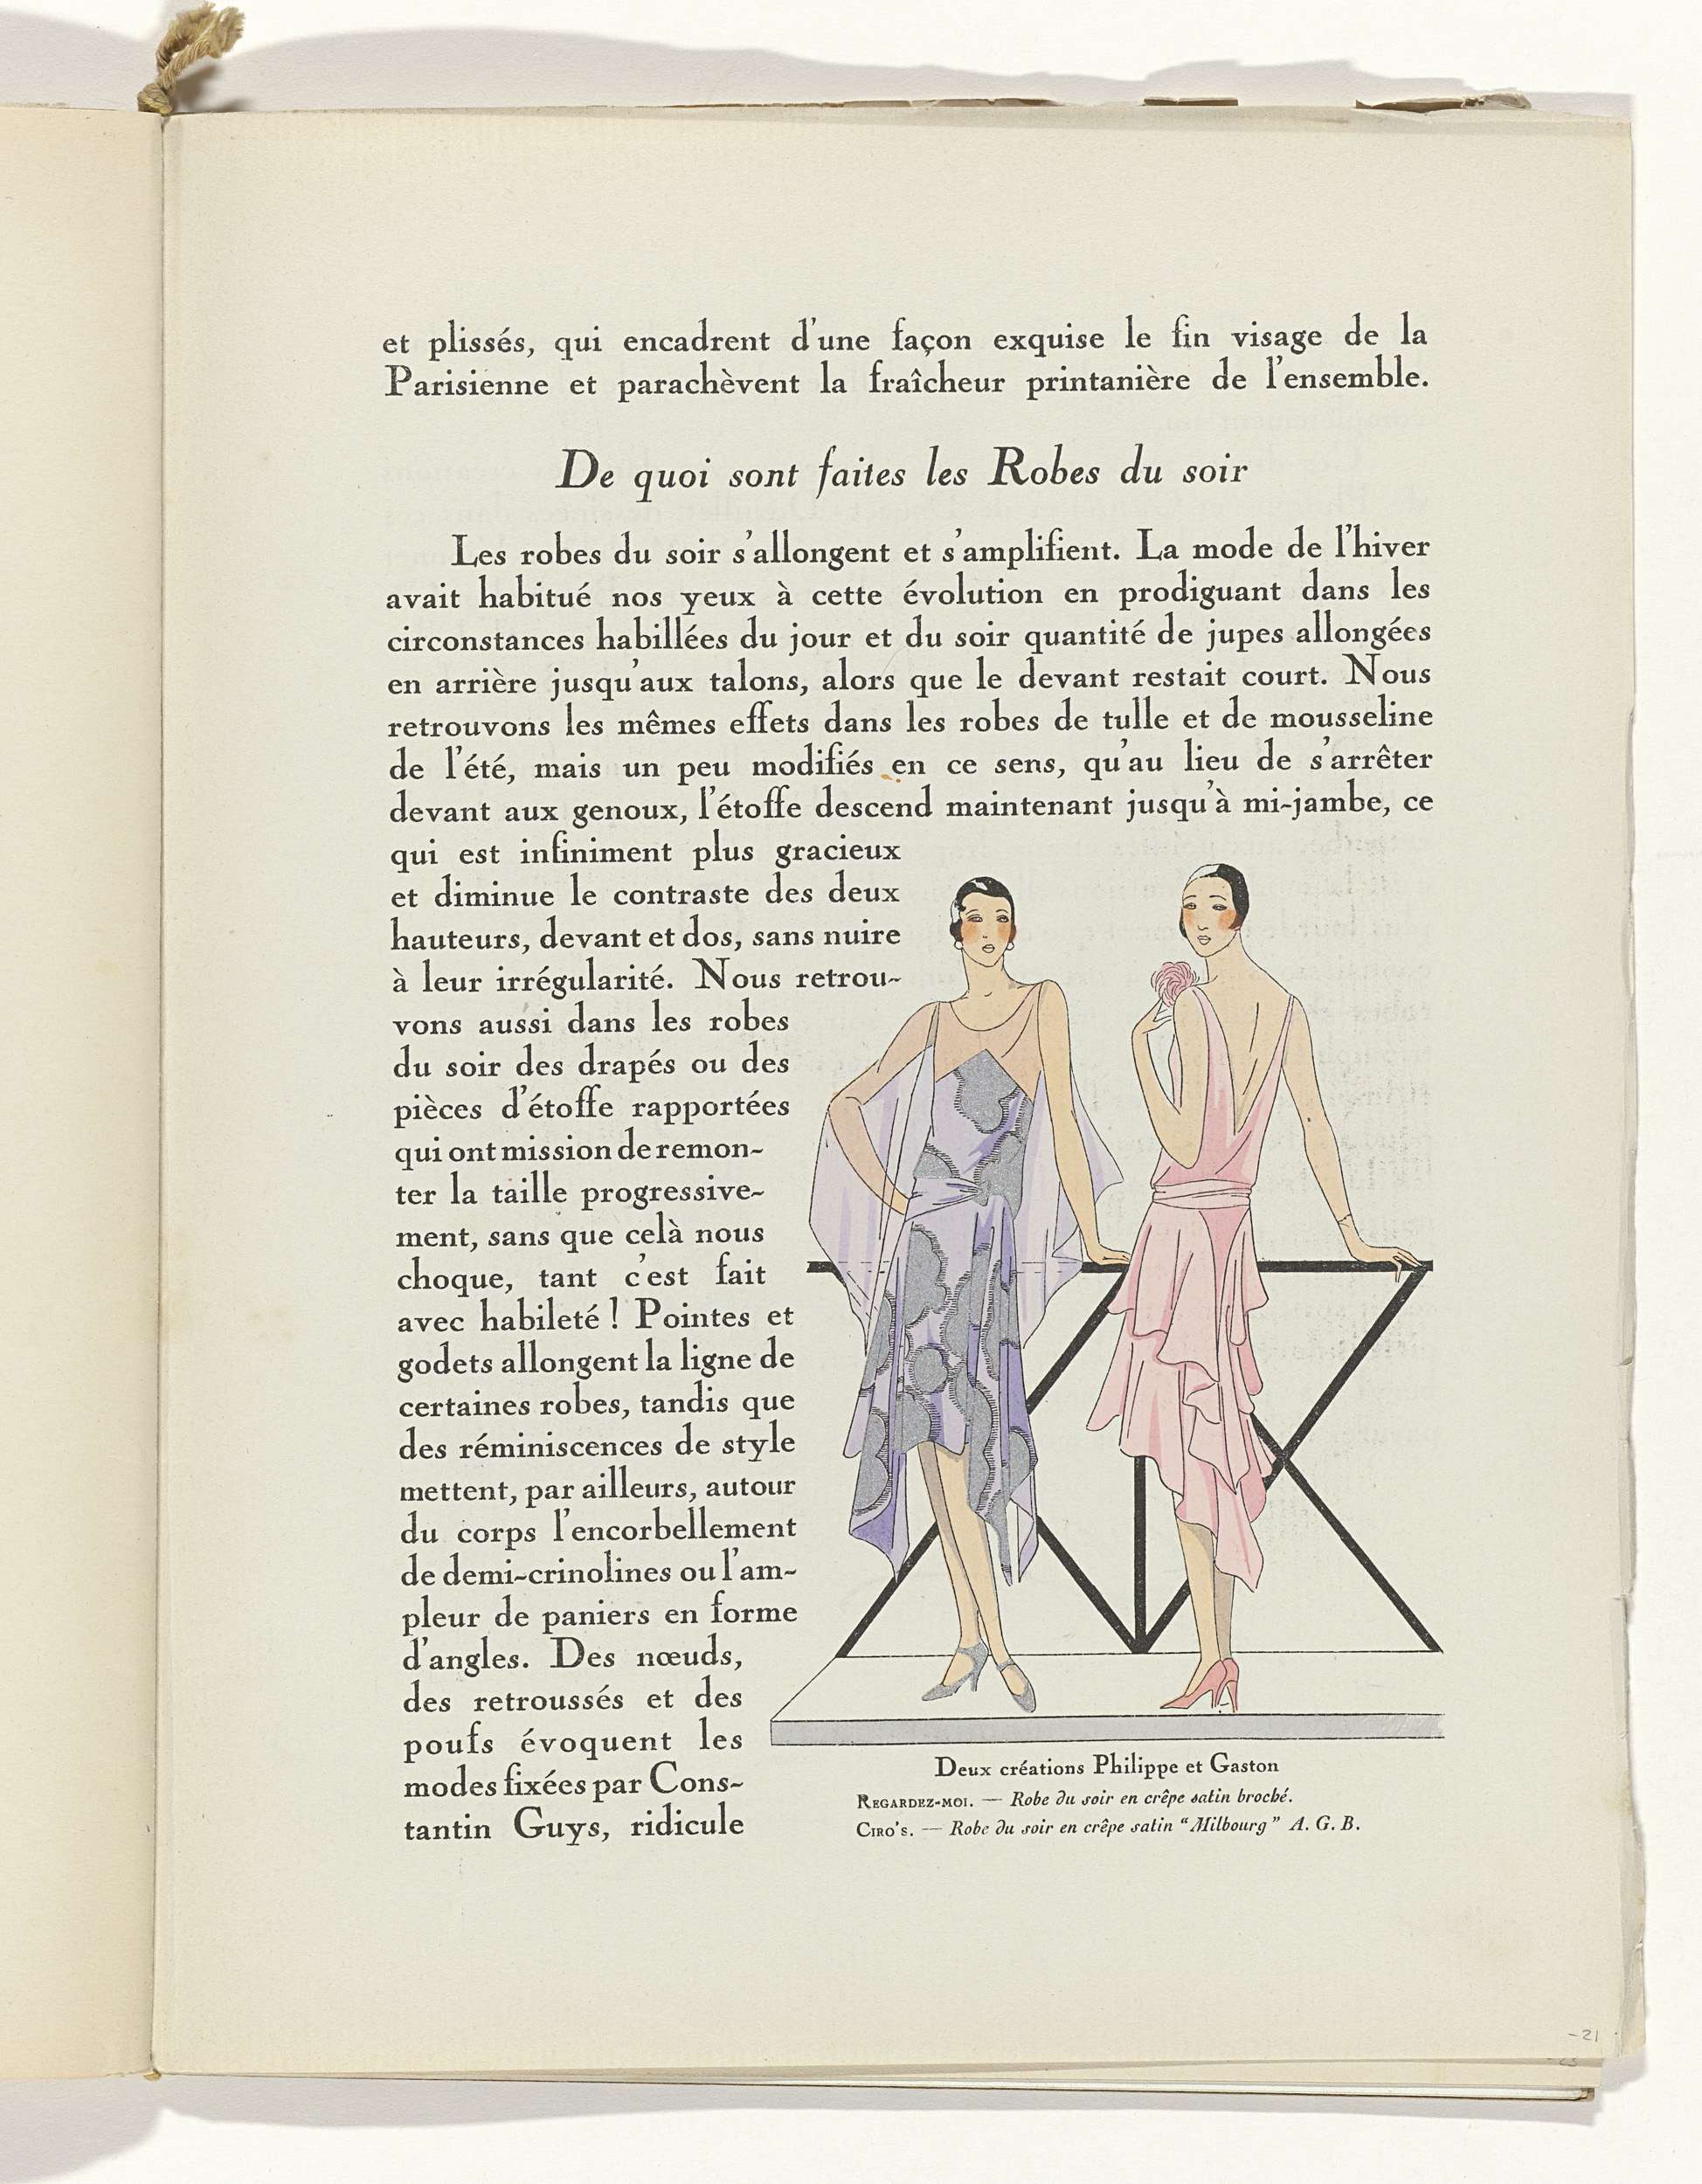 et plissés, qui encadrent d'une façon exquise le fin visage de la
Parisienne et parachèvent la fraîcheur printanière de l'ensemble.
De quoi sont faites les Robes du soir
Les robes du soir s'allongent et s'amplifient. La mode de l'hiver
avait habitué nos yeux à cette évolution en prodiguant dans les
circonstances habillées du jour et du soir quantité de jupes allongées
en arrière jusqu'aux talons, alors que le devant restait court. Nous
retrouvons les mêmes effets dans les robes de tulle et de mousseline
de l'été, mais un peu modifiés en ce sens, qu'au lieu de s'arrêter
devant aux genoux, l'étoffe descend maintenant jusqu'à mi-jambe, ce
qui est infiniment plus gracieux
et diminue le contraste des deux
hauteurs, devant et dos, sans nuire
à leur irrégularité. Nous retrou-
vons aussi dans les robes
du soir des drapés ou des
pièces d'étoffe rapportées
qui ont mission de remon-
ter la taille progressive-
ment, sans que celà nous
choque, tant c'est fait
avec habileté ! Pointes et
godets allongent la ligne de
certaines robes, tandis que
des réminiscences de style
mettent, par ailleurs, autour
du corps l'encorbellement
de demi-crinolines ou l'am-
pleur de paniers en forme
d'angles. Des nœuds,
des retroussés et des
poufs évoquent les
modes fixées par Cons-
tantin Guys, ridicule
Deux créations Philippe et Gaston
REGARDEZ-MOI. — Robe du soir en crêpe satin broché.
CIRO'S. — Robe du soir en crêpe satin "Milbourg" A. G. B.
-21